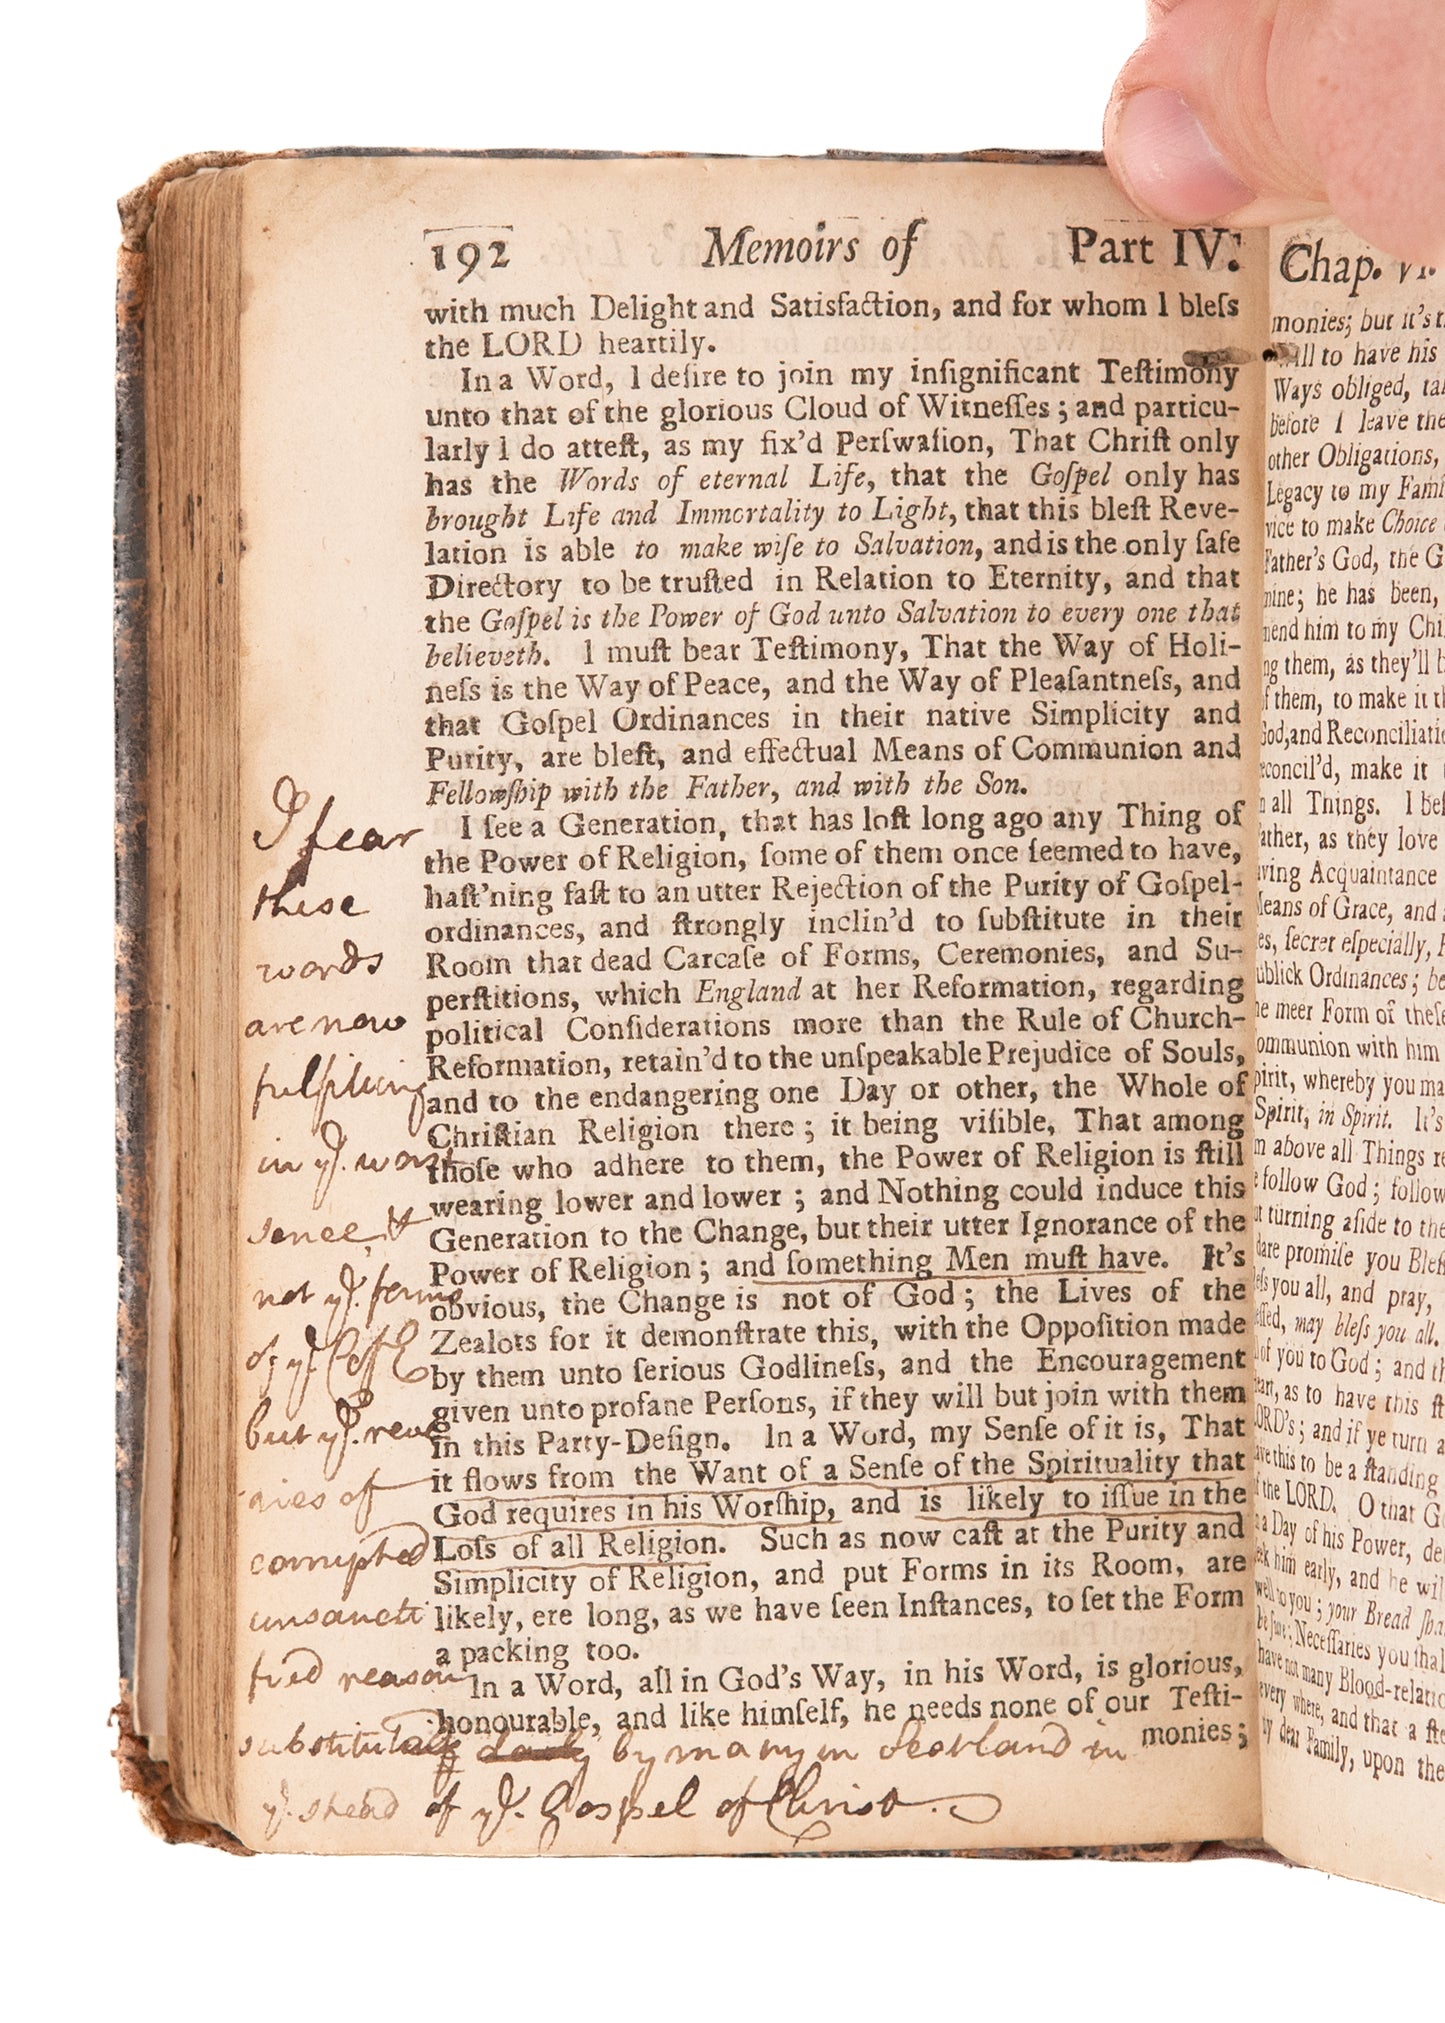 192 Memoirs of Part IV.
with much Delight and Satisfaction, and for whom I bleſs
the LORD heartily.
In a Word, I deſire to join my inſignificant Teſtimony
unto that of the glorious Cloud of Witneſſes; and particu-
larly I do atteſt, as my fix'd Perſwaſion, That Chriſt only
has the Words of eternal Life, that the Goſpel only has
brought Life and Immortality to Light, that this bleſt Reve-
lation is able to make wiſe to Salvation, and is the only ſafe
Directory to be truſted in Relation to Eternity, and that
the Goſpel is the Power of God unto Salvation to every one that
believeth. I muſt bear Teſtimony, That the Way of Holi-
neſs is the Way of Peace, and the Way of Pleaſantneſs, and
that Goſpel Ordinances in their native Simplicity and
Purity, are bleſt, and effectual Means of Communion and
Fellowſhip with the Father, and with the Son.
I ſee a Generation, that has loſt long ago any Thing of
the Power of Religion, ſome of them once ſeemed to have,
haſt'ning faſt to an utter Rejection of the Purity of Goſpel-
ordinances, and ſtrongly inclin'd to ſubſtitute in their
Room that dead Carcaſe of Forms, Ceremonies, and Su-
perſtitions, which England at her Reformation, regarding
political Conſiderations more than the Rule of Church-
Reformation, retain'd to the unſpeakable Prejudice of Souls,
and to the endangering one Day or other, the Whole of
Chriſtian Religion there; it being viſible, That among
thoſe who adhere to them, the Power of Religion is ſtill
wearing lower and lower; and Nothing could induce this
Generation to the Change, but their utter Ignorance of the
Power of Religion; and ſomething Men muſt have. It's
obvious, the Change is not of God; the Lives of the
Zealots for it demonſtrate this, with the Oppoſition made
by them unto ſerious Godlineſs, and the Encouragement
given unto profane Perſons, if they will but join with them
in this Party-Deſign. In a Word, my Senſe of it is, That
it flows from the Want of a Senſe of the Spirituality that
God requires in his Worſhip, and is likely to iſſue in the
Loſs of all Religion. Such as now caſt at the Purity and
Simplicity of Religion, and put Forms in its Room, are
likely, ere long, as we have ſeen Inſtances, to ſet the Form
a packing too.
In a Word, all in God's Way, in his Word, is glorious,
honourable, and like himſelf, he needs none of our Teſti-
monies;
I fear
these
words
are now
fulfilling
in yͤ. worst
sence, &
not yͤ. forms
of yͤ.
but yͤ. reve
ries of
corrupted
unsancti
fied reason
substitute by many in Scotland in
yͤ. stead of yͤ. Gospel of Christ.
Chap. VI.
monies; but it's
all to have his
Ways obliged,
before I leave the
other Obligations,
Legacy to my
vice to make Choice
Father's God, the
mine; he has been,
him to my
them, as they'll
them, to make it
God, and
make it
all Things. I
as they love
Acquaintance
Means of Grace, and
ſecret eſpecially,
Ordinances;
meer Form of theſe
with him
whereby you
Spirit, in Spirit. It's
above all Things
follow God; follow
turning aſide to the
promiſe you
you all, and pray,
may bleſs you all.
of you to God; and
as to have this
and if ye turn
this to be a ſtanding
the LORD. O that
a Day of his Power,
him early, and he
to you; your Bread
Neceſſaries you
have not many
every where, and that a
my dear Family, upon the